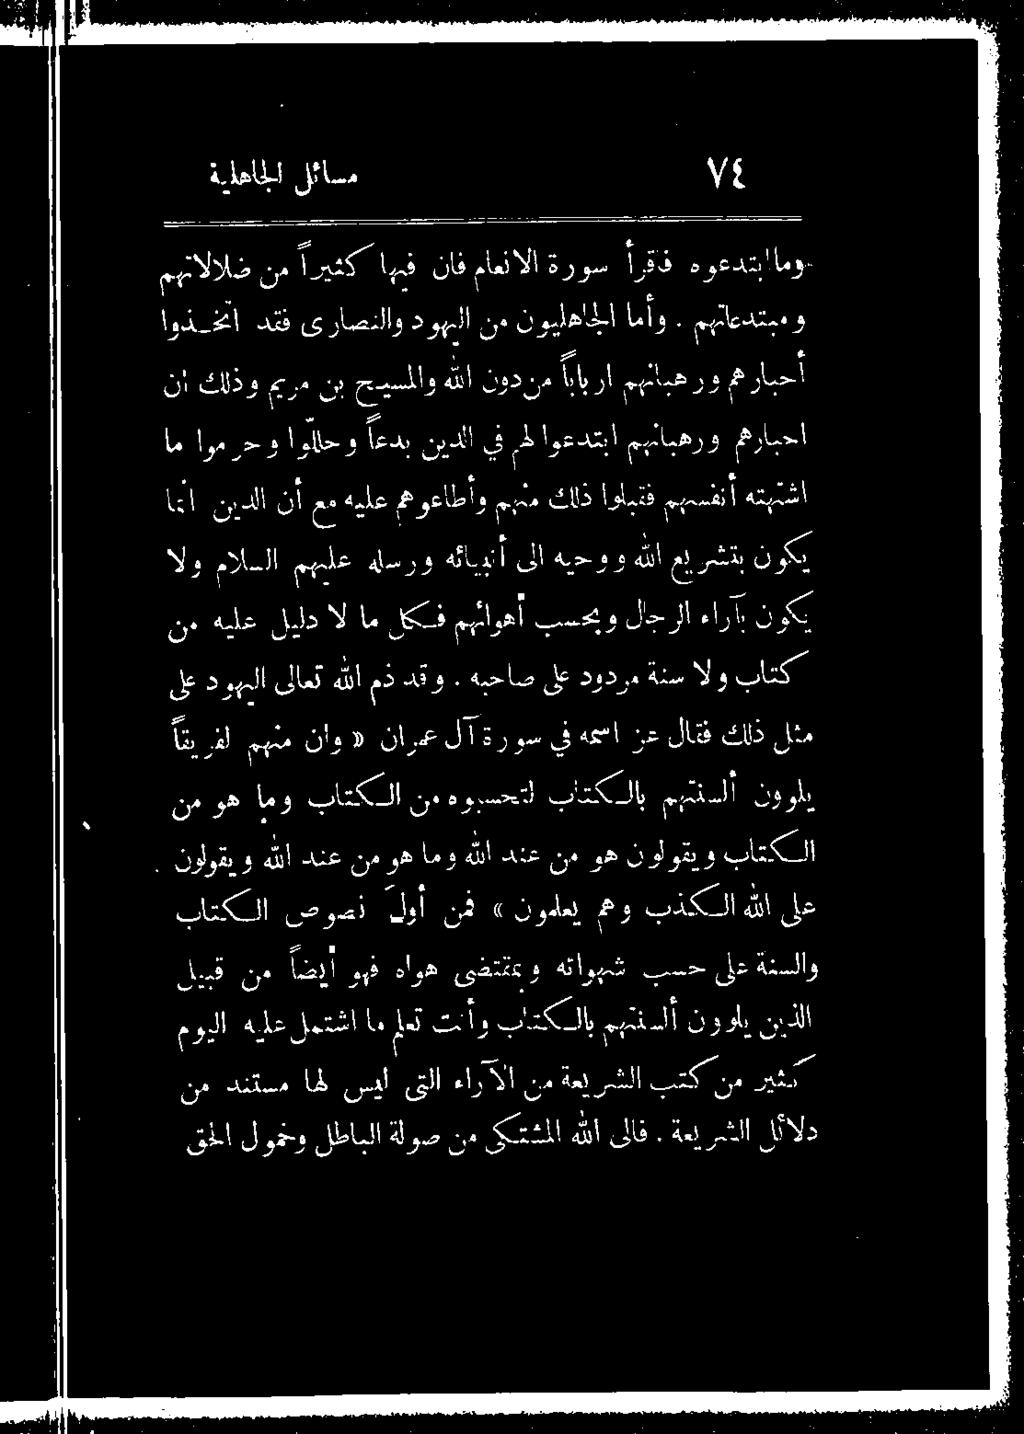 ٧٤ مسائل الجاهلية
وما ابتدعوه فاقرأ سورة الانعام فان فيها كثيراً من ضلالاتهم
ومبتدعاتهم . وأما الجاهليون من اليهود والنصارى فقد اتخـذوا
أحبارهم ورهبانهم ارباباً من دون الله والمسيح بن مريم وذلك ان
احبارهم ورهبانهم ابتدعوا لهم في الدين بدعاً وحللوا وحرموا ما
اشتهته أنفسهم فقبلوا ذلك منهم وأطاعوهم عليه مع أن الدين انما
يكون بتشريع الله ووحيه الى أنبيائه ورسله عليهم السلام ولا
يكون بآراء الرجال وبحسب أهوائهم فـكل ما لا دليل عليه من
كتاب ولا سنة مردود على صاحبه . وقد ذم الله تعالى اليهود على
مثل ذلك فقال عز اسمه في سورة آل عمران « وان منهم لفريقاً
يلوون ألسنتهم بالـكتاب لتحسبوه من الـكتاب وما هو من
الـكتاب ويقولون هو من عند الله وما هو من عند الله ويقولون
على الله الـكذب وهم يعلمون » فمن أولَ نصوص الـكتاب
والسنة على حسب شهواته وبمقتضى هواه فهو أيضاً من قبيل
الذين يلوون ألسنتهم بالـكتاب وأنت تعلم ما اشتمل عليه اليوم
كثير من كتب الشريعة من الآراء التى ليس لها مستند من
دلائل الشريعة . فالى الله المشتـكى من صولة الباطل وخمول الحق